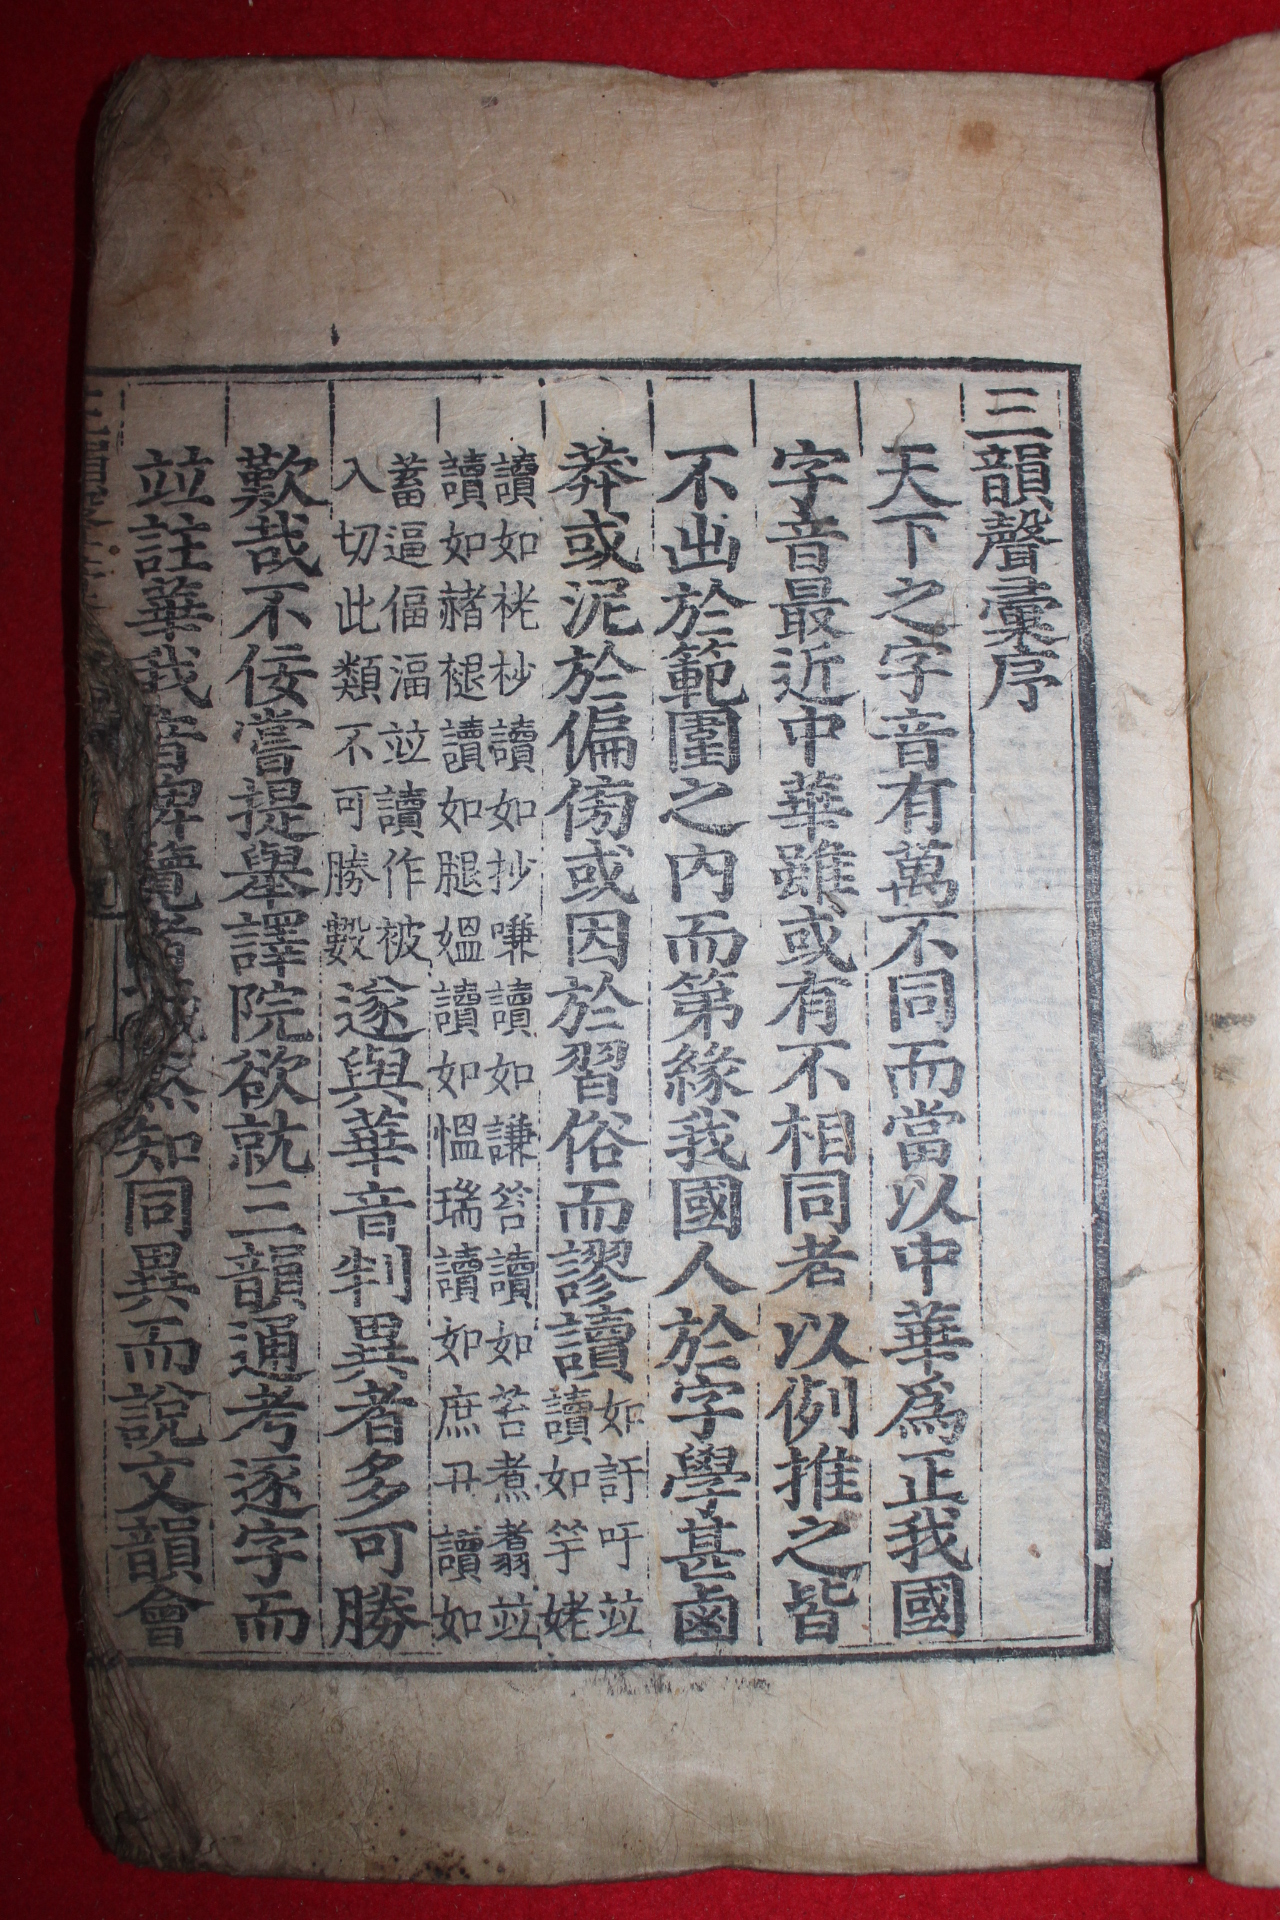 三韻聲彙序
天下之字音有萬不同而當以中華爲正我國
字音最近中華雖或有不相同者以例推之皆
不出於範圍之內而第緣我國人於字學甚鹵
莽或泥於偏傍或因於習俗而謬讀
如訏吁竝
讀如竽姥
讀如栳杪讀如抄嗛讀如謙笤讀如苕煮翥竝
讀如赭褪讀如腿媼讀如慍瑞讀如庶丑讀如
蓄逼偪湢竝讀作被
入切此類不可勝數
遂與華音判異者多可勝
歎哉不佞嘗提擧譯院欲就三韻通考逐字而
竝註華我音俾覽者知同異而說文韻會